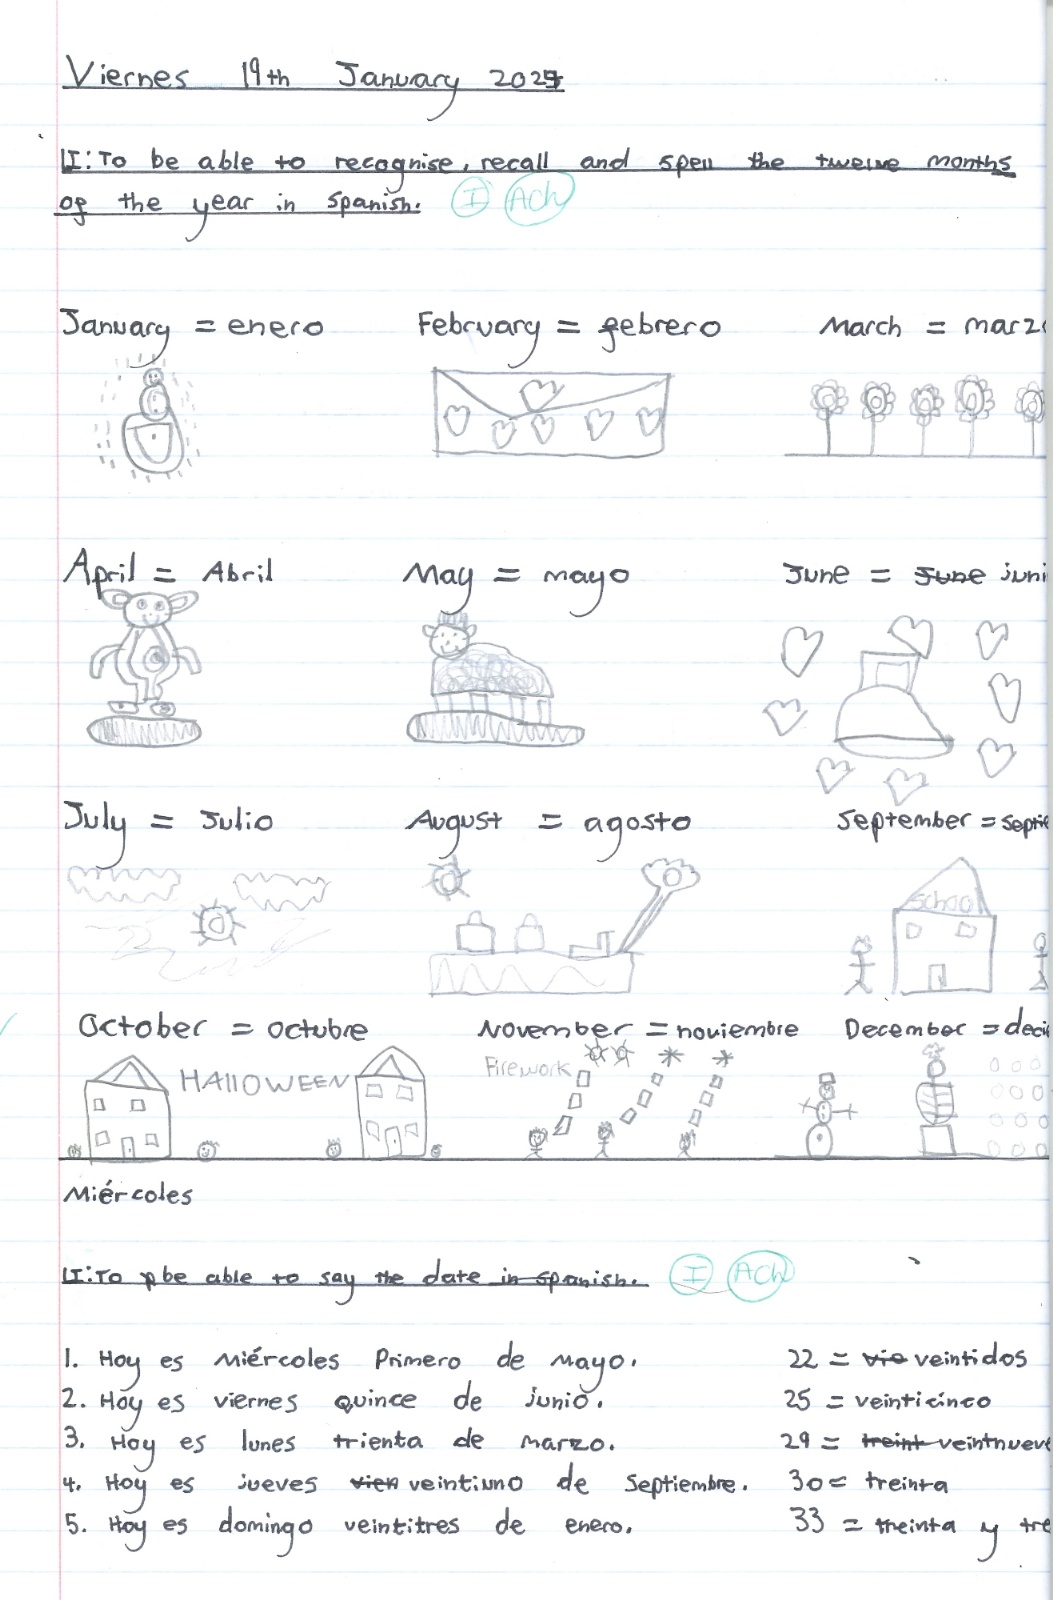 Viernes 19th January 2024
LI: To be able to recognise, recall and spell the twelve months
of the year in Spanish. I Ach
January = enero February = febrero March = marzo
April = Abril May = mayo June = June juni
July = Julio August = agosto September = septie
School
October = octubre November = noviembre December = decie
HAllOWEEN Firework
Miércoles
LI: To be able to say the date in Spanish. I ACh
1. Hoy es Miércoles Primero de mayo. 22 = vie veintidos
2. Hoy es viernes quince de junio. 25 = veinticinco
3. Hoy es lunes trienta de marzo. 29 = treint veintnueve
4. Hoy es jueves vien veintiuno de Septiembre. 30 = treinta
5. Hoy es domingo veintitres de enero. 33 = treinta y tre